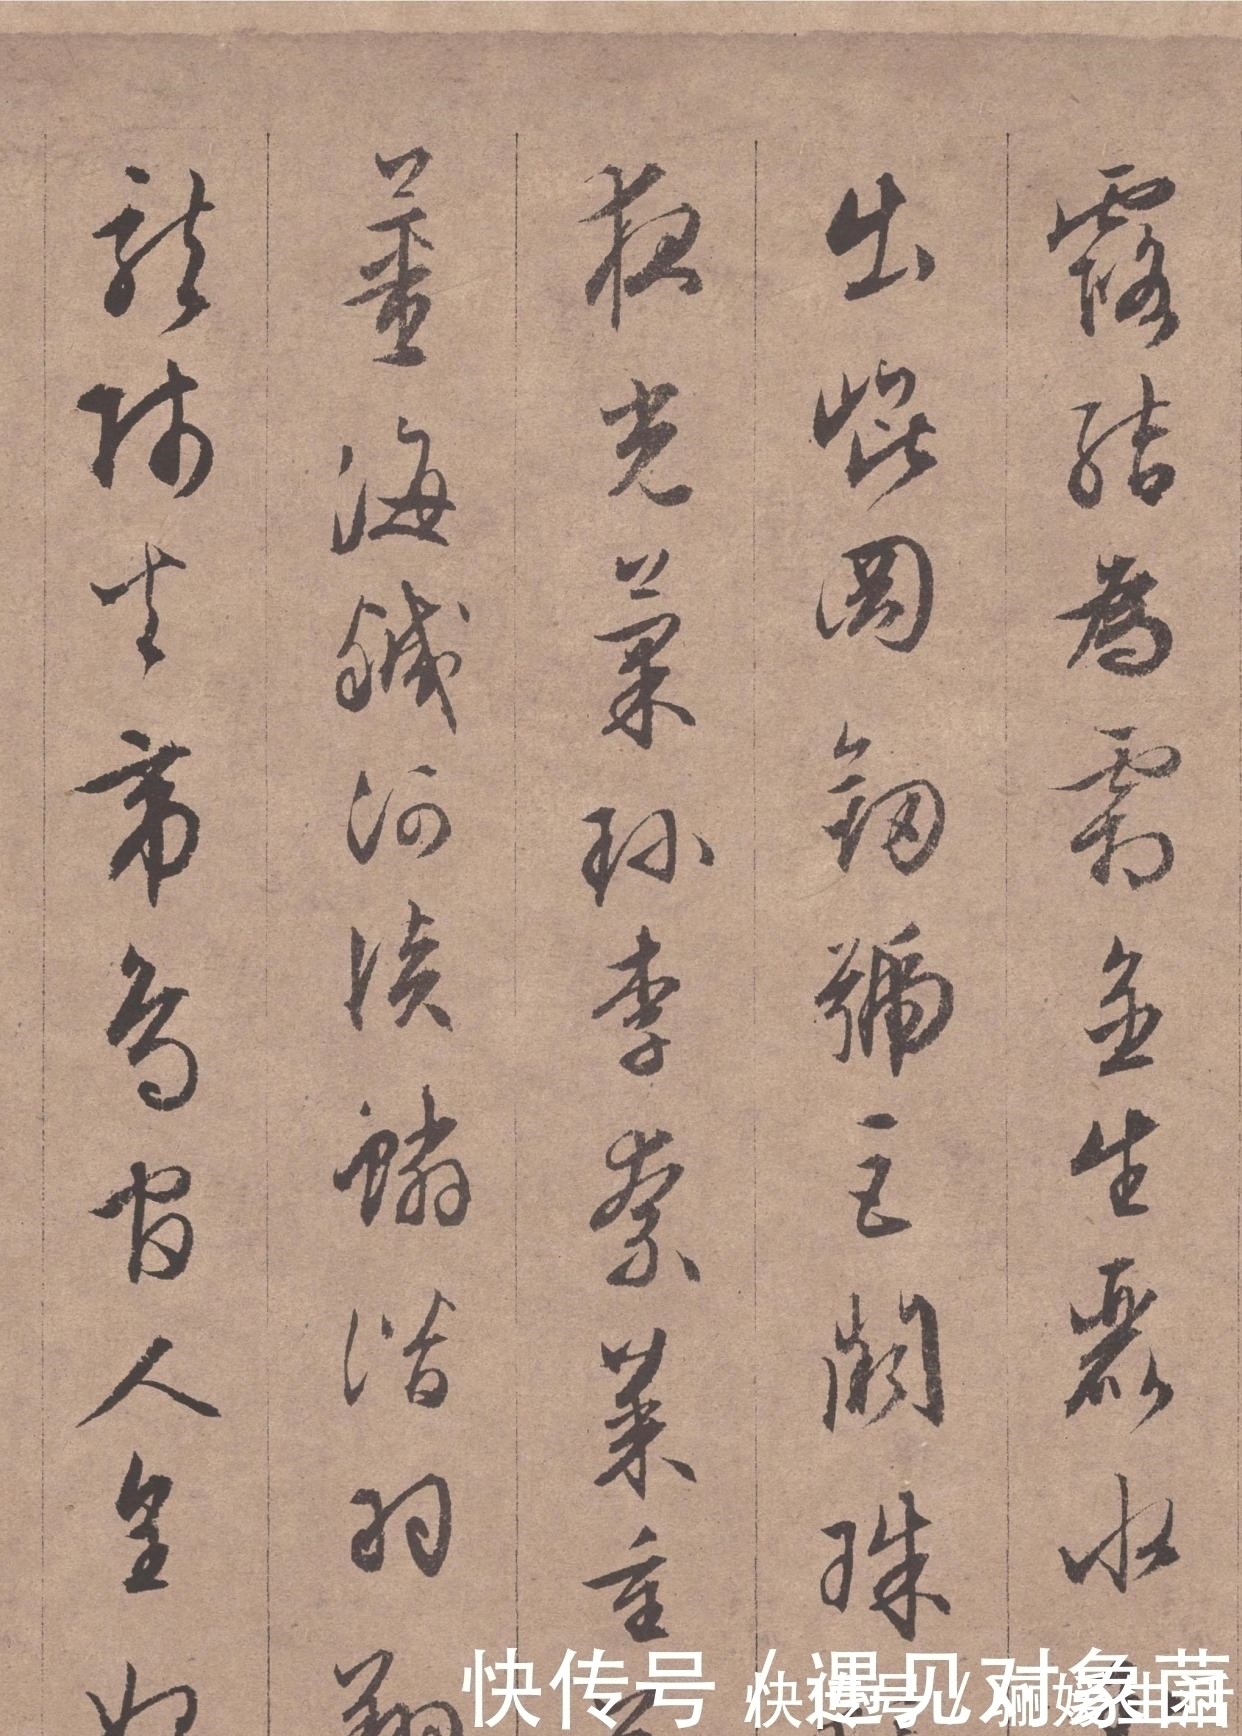 露結為霜金生麗水
出崐岡劔號巨闕珠
夜光菓珎李柰菜重
薑海鹹河淡鱗潛羽翔
龍師火帝鳥官人皇始
快传号 / 遇见对象菌
快传号 /